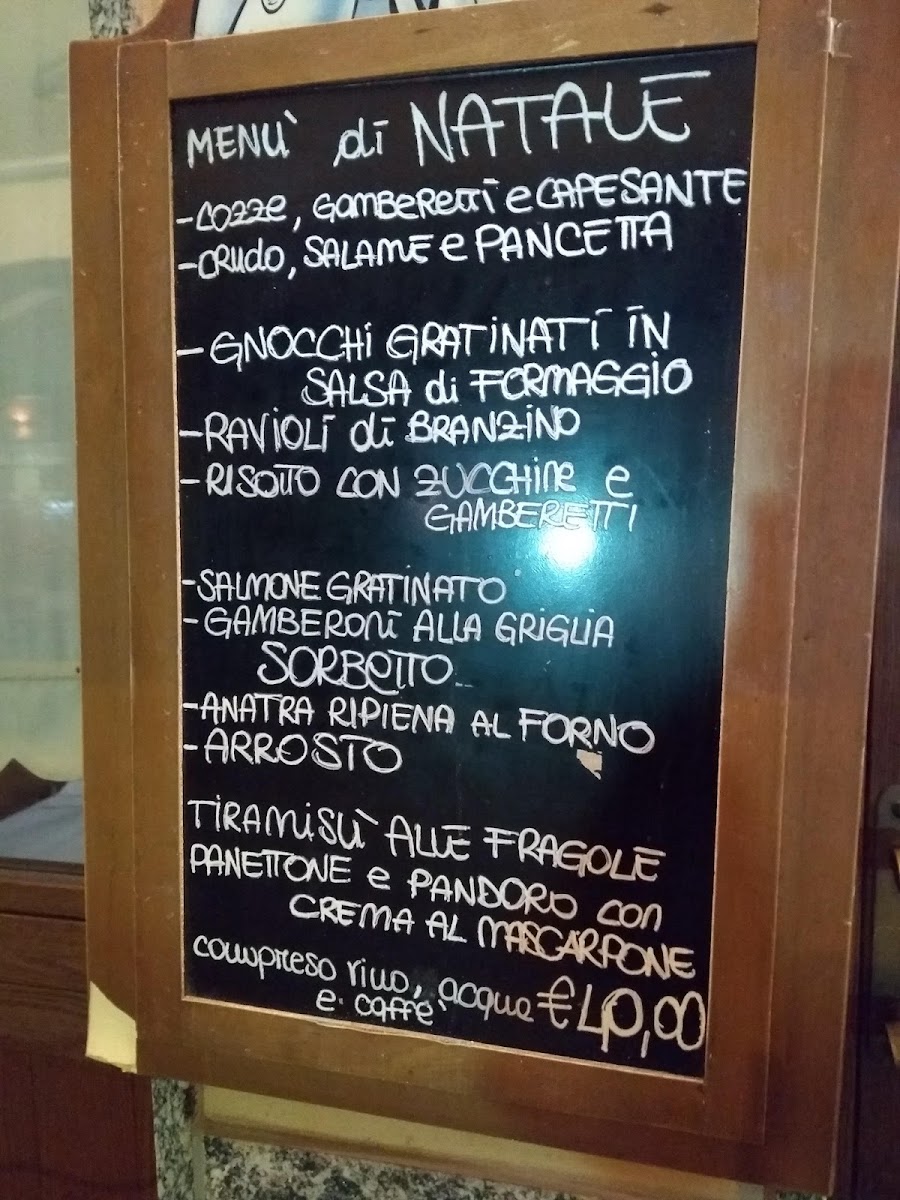 MENÙ di NATALE
-COZZE, GAMBERETTI e CAPESANTE
-CRUDO, SALAME e PANCETTA
- GNOCCHI GRATINATI IN
SALSA di FORMAGGIO
-RAVIOLI di BRANZINO
-RISOTTO CON ZUCCHINE e
GAMBERETTI
-SALMONE GRATINATO
-GAMBERONI ALLA GRIGLIA
SORBETTO
-ANATRA RIPIENA AL FORNO
-ARROSTO
TIRAMISÙ ALLE FRAGOLE
PANETTONE e PANDORO con
CREMA AL MASCARPONE
compreso vino, acqua €40,00
e caffè